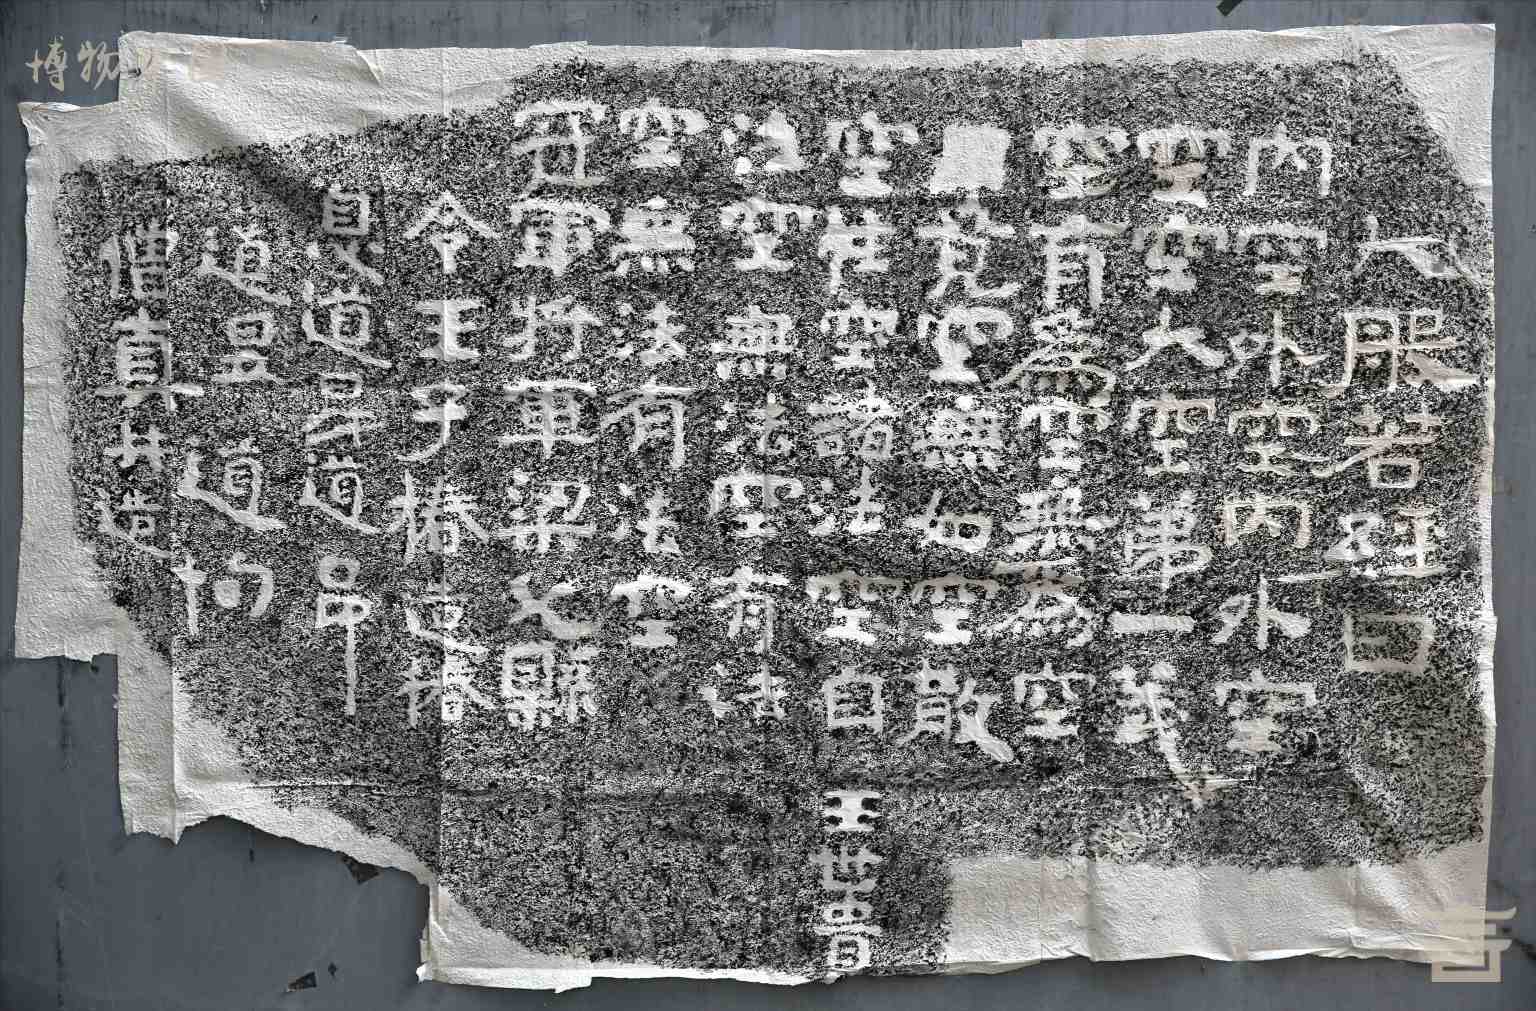 大般若經曰
內空外空內外空
空空大空第一義
空有為空無為空
竟空無如空散
空性空諸法空自
王世貴
法空無法空有法
空無法有法空
冠軍將軍梁父縣
令王子椿造椿
息道昇道昂
道昱道枸
僧真共造
博物